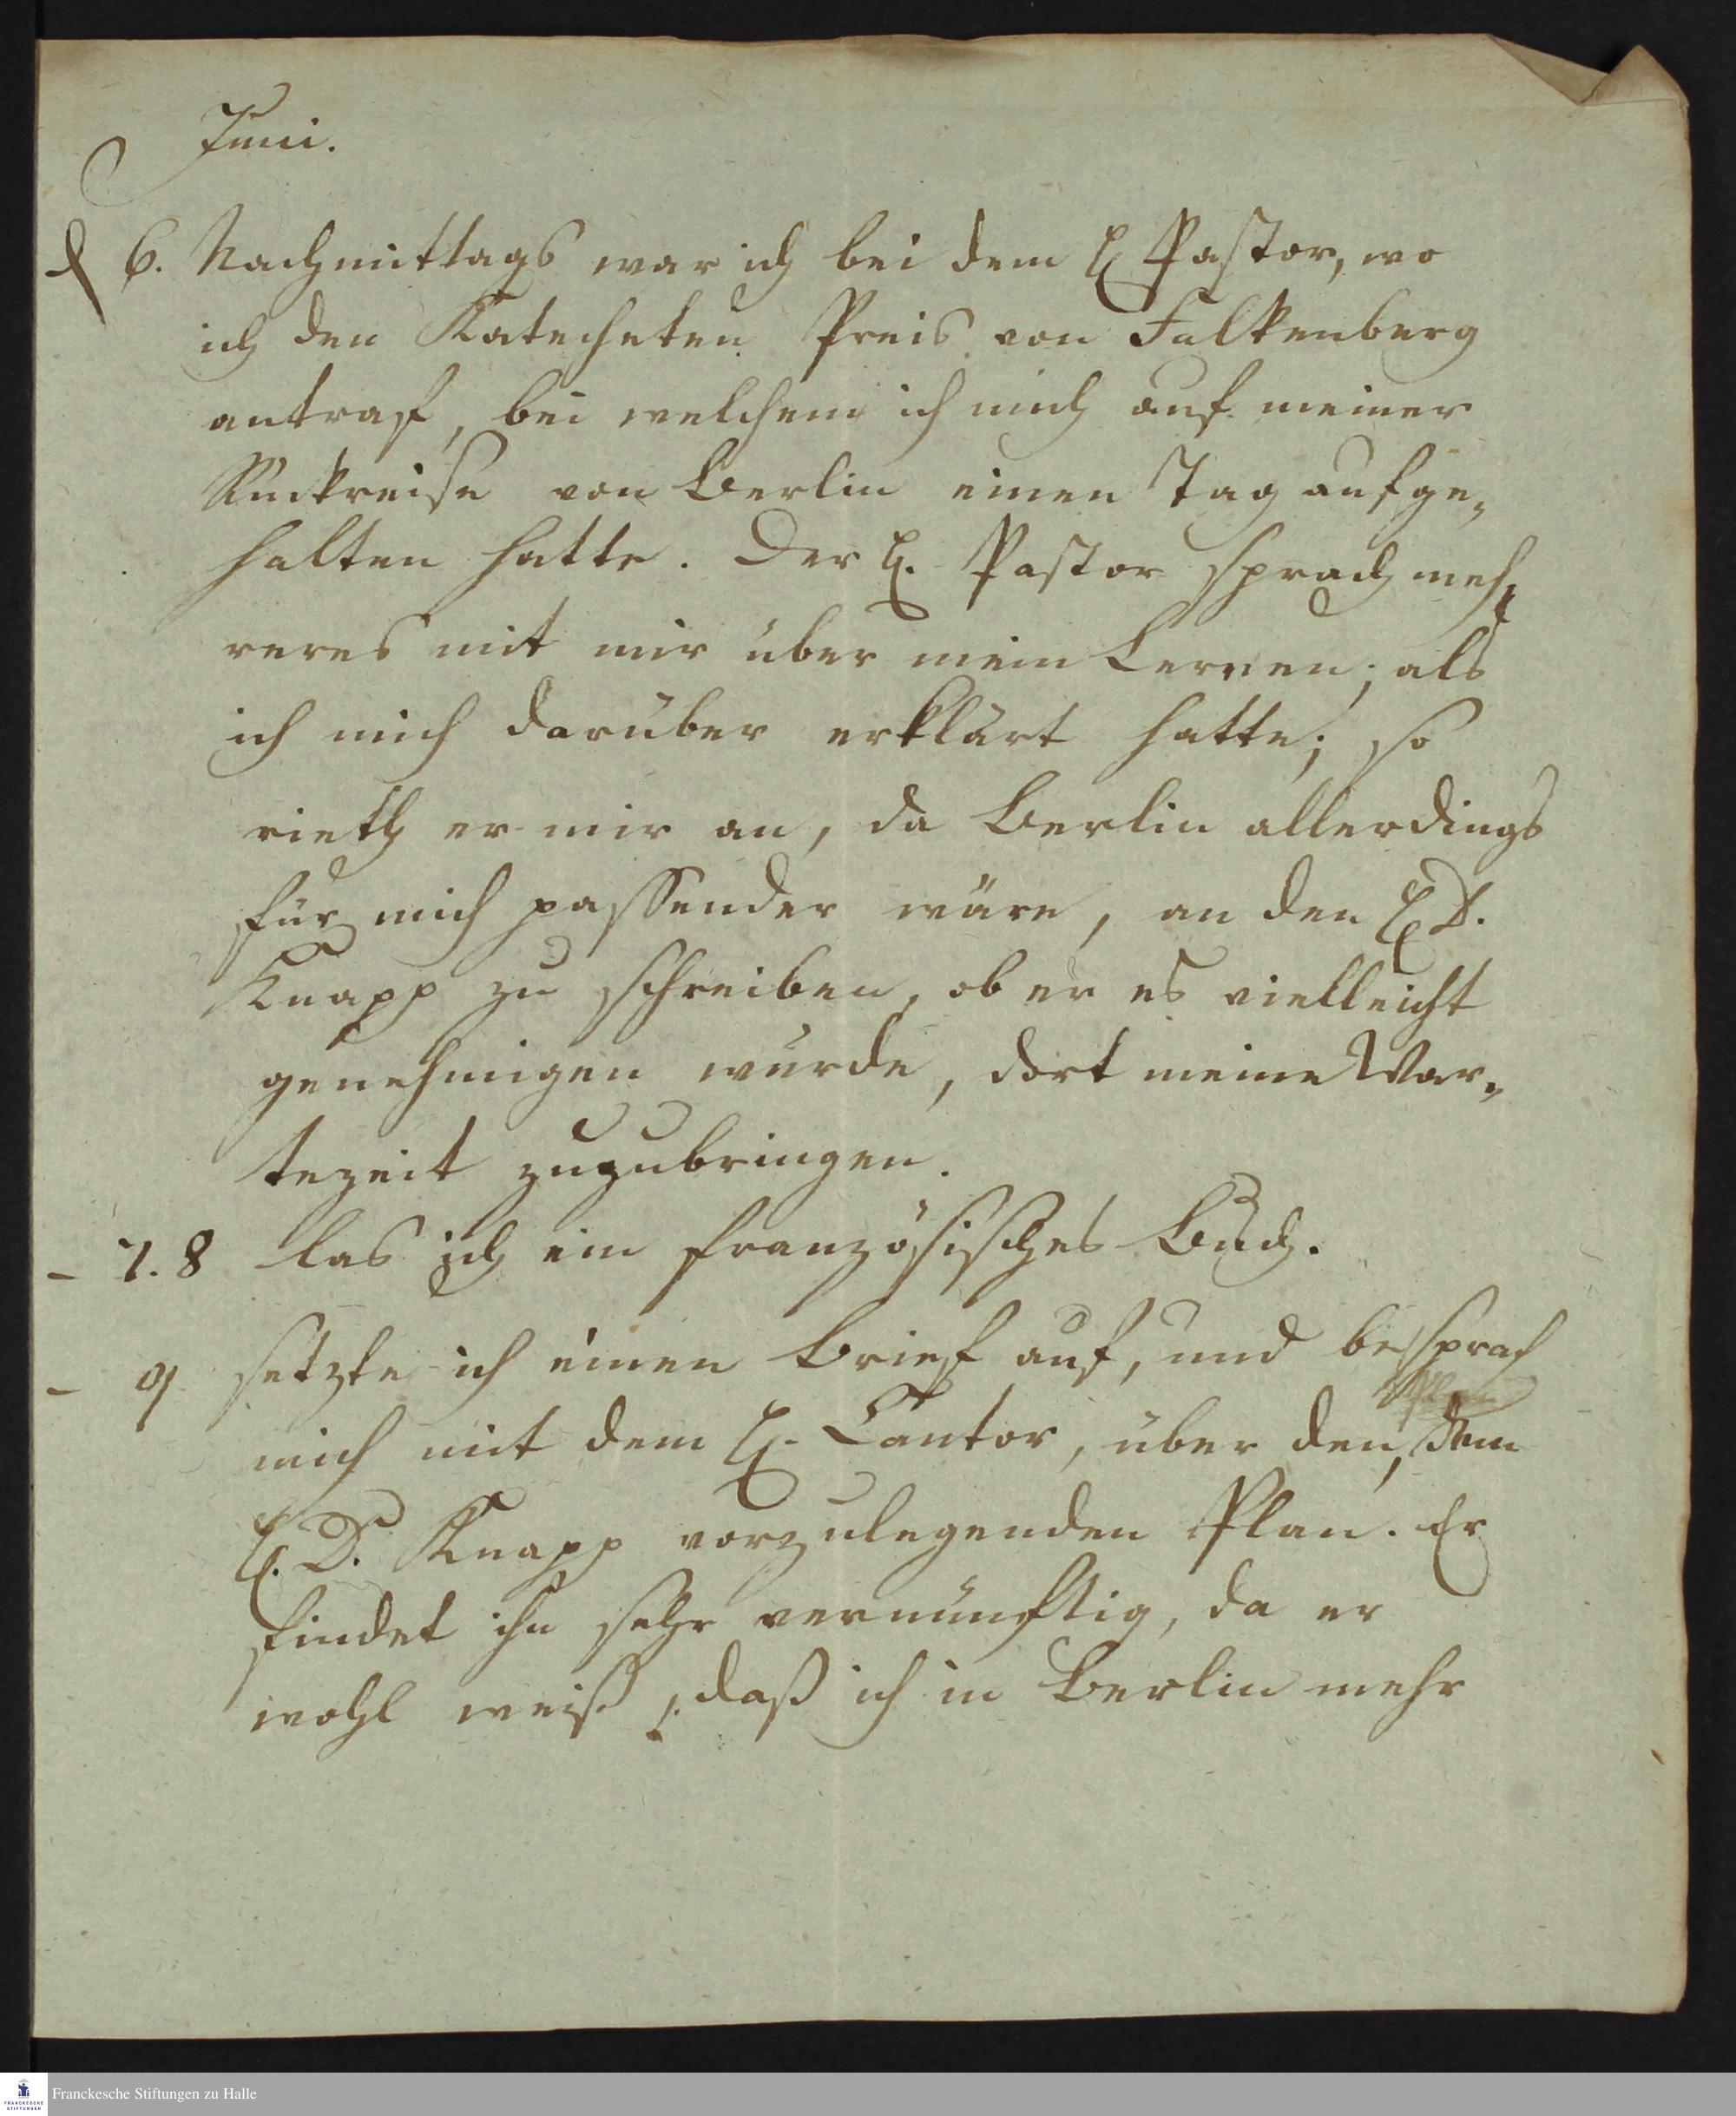 Juni.
d 6. Nachmittags war ich bei dem H. Pastor, wo
ich den Katecheten Preis von Falkenberg
antraf, bei welchem ich mich auf meiner
Rückreise von Berlin einen Tag aufge„
halten hatte. Der H. Pastor sprach meh„
reres mit mir über mein Lernen; als
ich mich darüber erklärt hatte; so
rieth er mir an, da Berlin allerdings
für mich passender wäre, an den H D.
Knapp zu schreiben, ob er es vielleicht
genehmigen würde, dort meine War„
tezeit zuzubringen.
- 7. 8 las ich ein französisches Buch.
- 9 setzte ich einen Brief auf, und besprach
mich mit dem H. Cantor, über den, dem
H. D. Knapp vorzulegenden Plan. Er
findet ihn sehr vernünftig, da er
wohl weiß, daß ich in Berlin mehr
FRANCKESCHE
STIFTUNGEN
Franckesche Stiftungen zu Halle